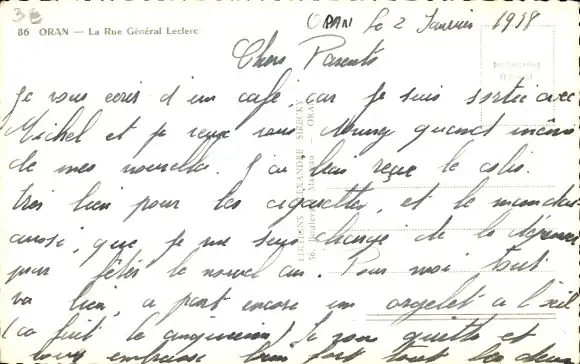 38
86 ORAN — La Rue Général Leclerc
ORAN le 2 Janvier 1958
Chers Parents
Je vous ecris d'un café, car je suis sortie avec
Michel et je veux vous quand même
de mes nouvelles. J'ai bien reçue le colis.
très bien pour les cigarettes, et le mandat
aussi, que je me suis chargé de le dépenser
pour fêter le nouvel an. Pour moi tout
va bien, a part encore un orgelet a l'œil
(ca fait le cinquieme). Je vous quitte et
vous embrasse bien fort tout les deux
EDITIONS ALEXANDRE SIRECKY
36, Boulevard Marceau — ORAN